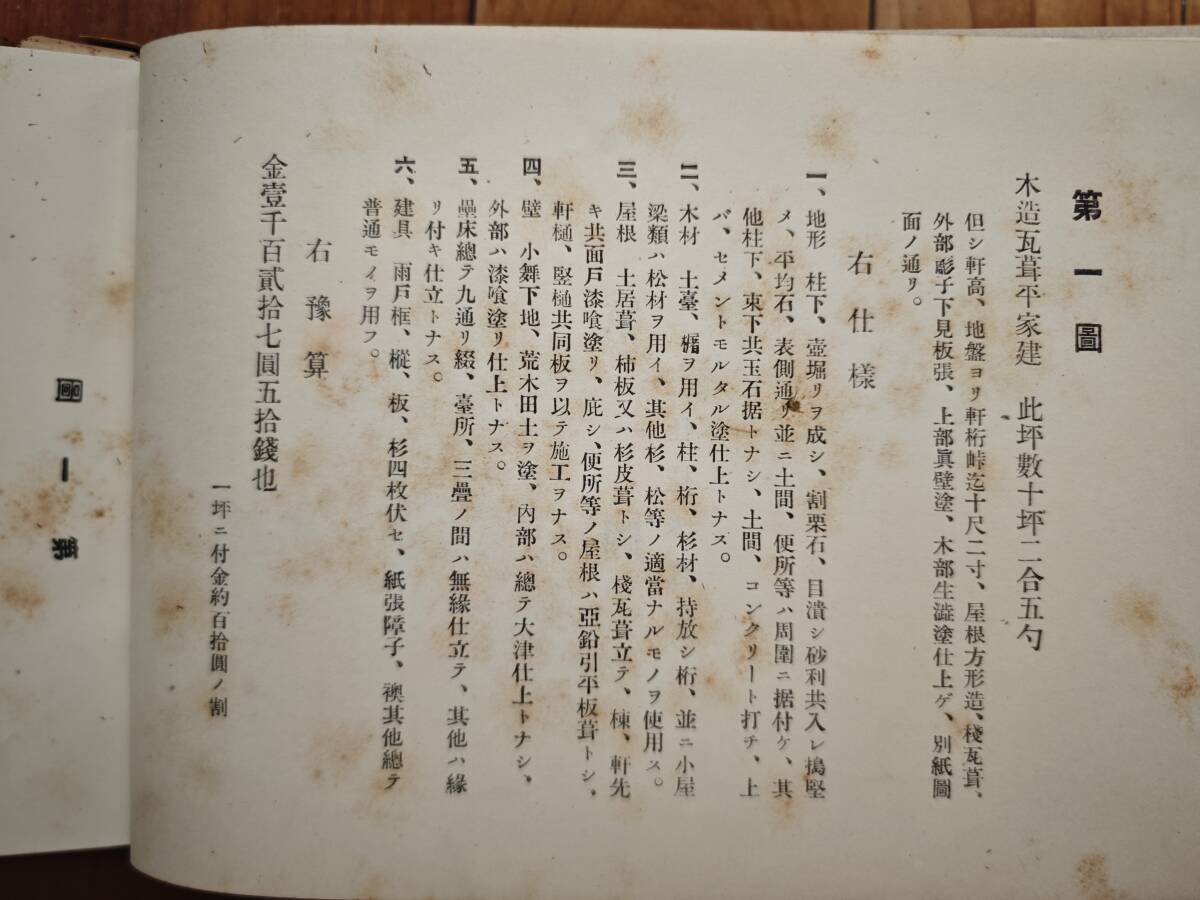 第一圖
木造瓦葺平家建　此坪數十坪二合五勺
但シ軒高、地盤ヨリ軒桁峠迄十尺二寸、屋根方形造、棧瓦葺、
外部彫子下見板張、上部眞壁塗、木部生澁塗仕上ゲ、別紙圖
面ノ通リ。
右仕樣
一、地形　柱下、壺堀リヲ成シ、割栗石、目潰シ砂利共入レ搗堅
メ、平均石、表側通リ並ニ土間、便所等ハ周圍ニ据付ケ、其
他柱下、束下共玉石据トナシ、土間、コンクリート打チ、上
バ、セメントモルタル塗仕上トナス。
二、木材　土臺、檜ヲ用イ、柱、桁、杉材、持放シ桁、並ニ小屋
梁類ハ松材ヲ用イ、其他杉、松等ノ適當ナルモノヲ使用ス。
三、屋根　土居葺、柿板又ハ杉皮葺トシ、棧瓦葺立テ、棟、軒先
キ共面戸漆喰塗リ、庇シ、便所等ノ屋根ハ亞鉛引平板葺トシ、
軒樋、竪樋共同板ヲ以テ施工ヲナス。
四、壁　小舞下地、荒木田土ヲ塗、內部ハ總テ大津仕上トナシ、
外部ハ漆喰塗リ仕上トナス。
五、疊床總テ九通リ綴、臺所、三疊ノ間ハ無緣仕立テ、其他ハ緣
リ付キ仕立トナス。
六、建具　雨戸框、樅、板、杉四枚伏セ、紙張障子、襖其他總テ
普通モイヲ用フ。
右豫算
金壹千百貳拾七圓五拾錢也
一坪ニ付金約百拾圓ノ割
第一圖